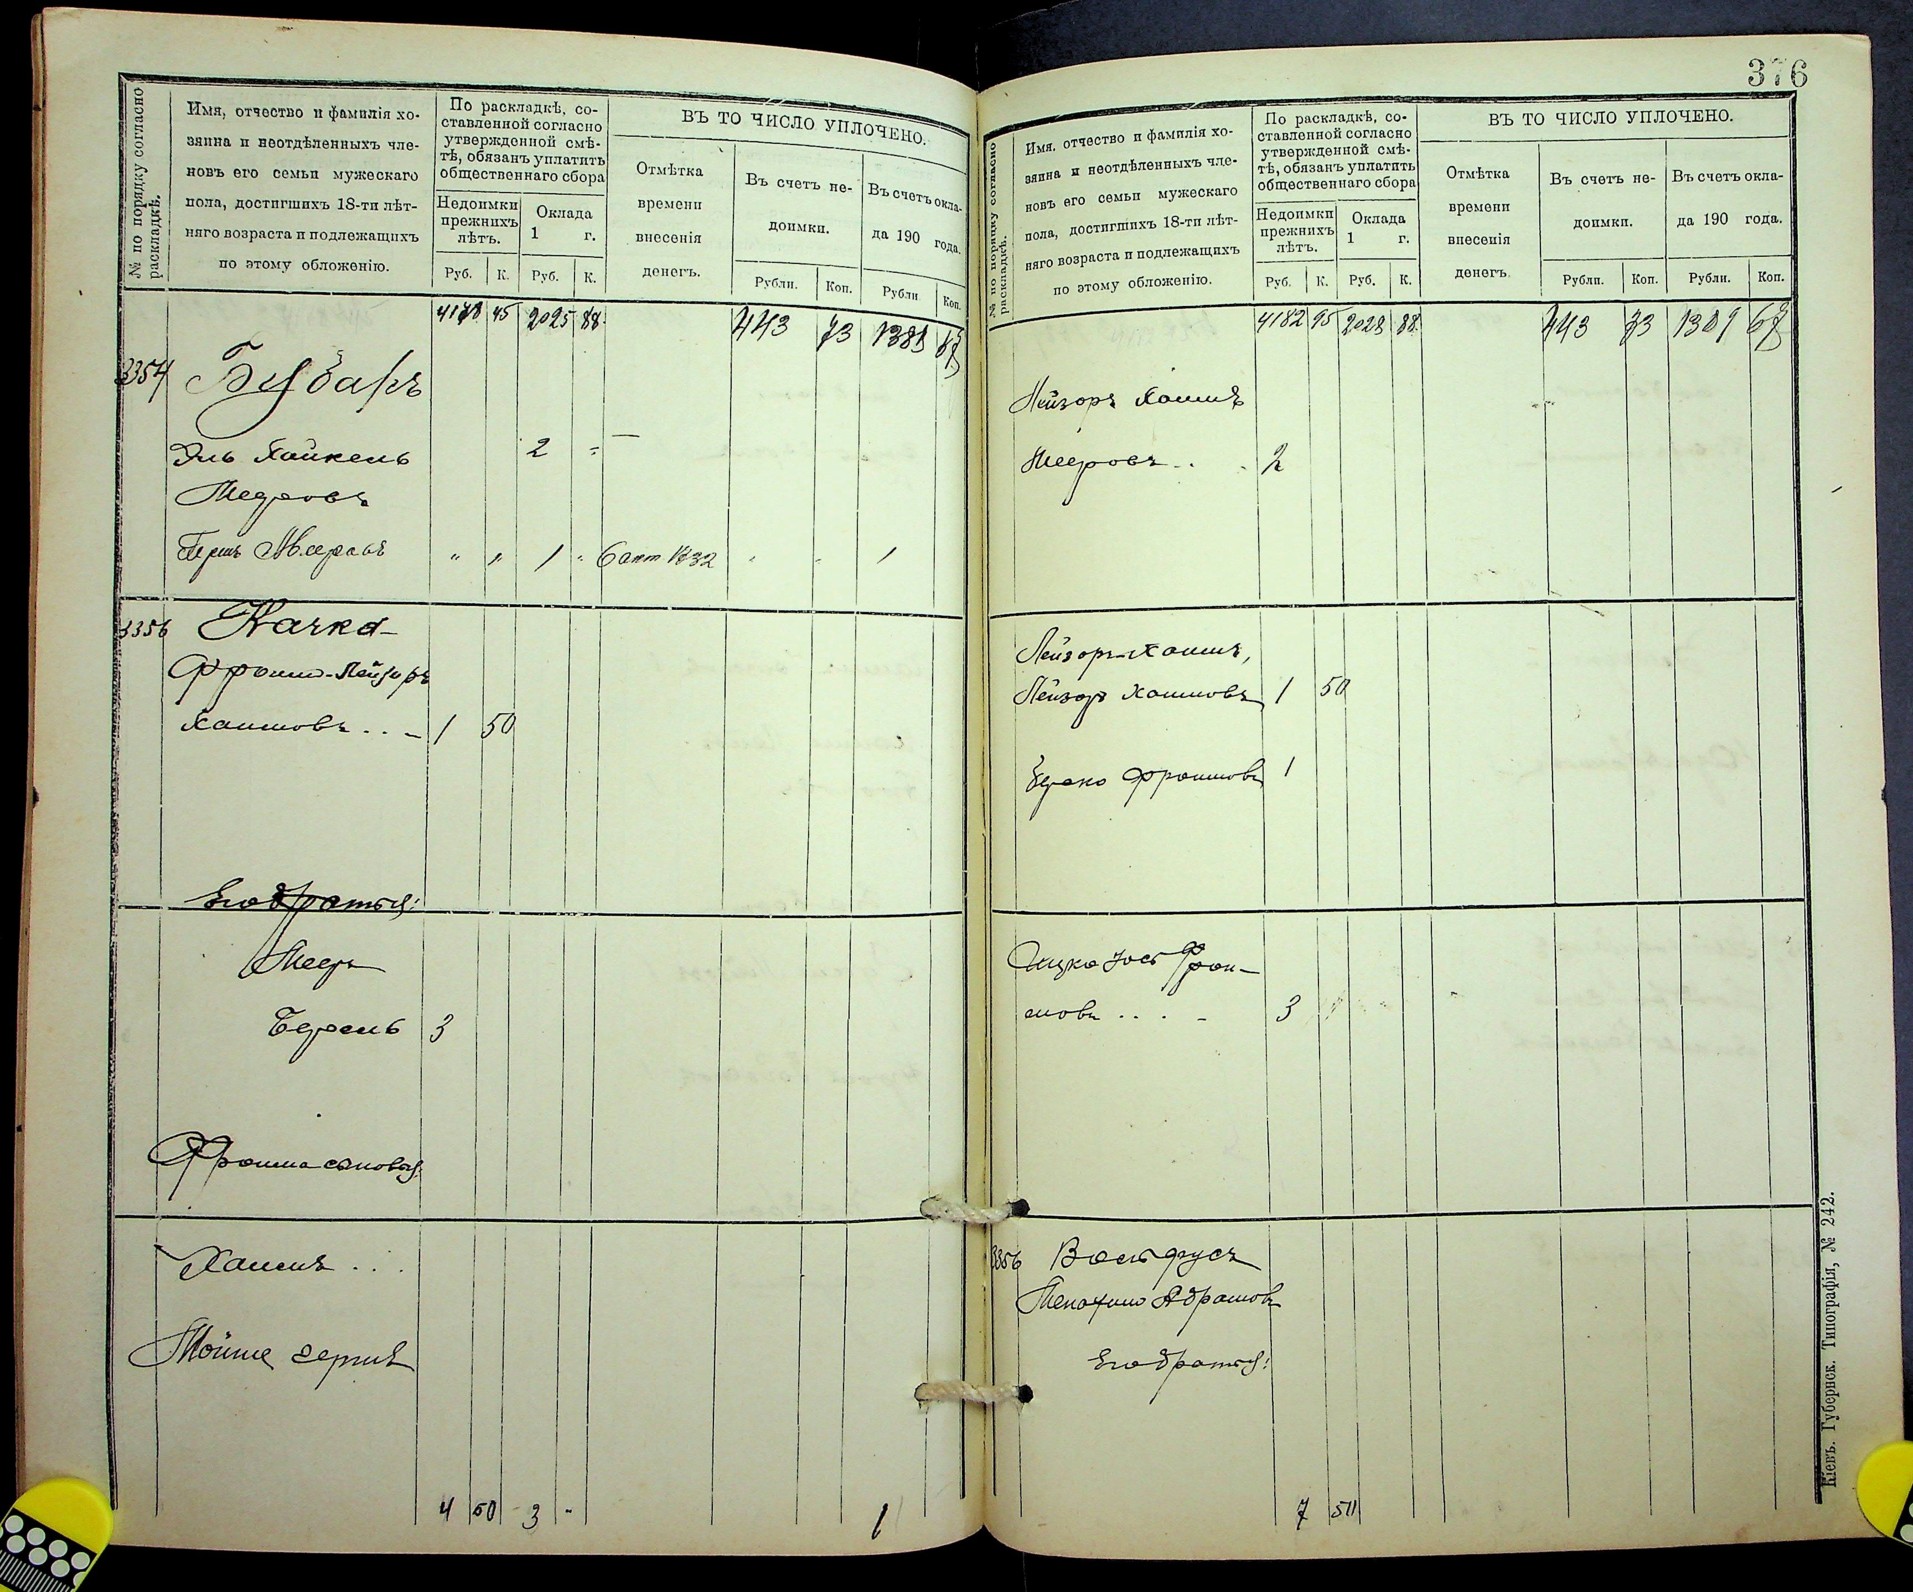 376
№ по порядку согласно раскладкѣ.
Имя, отчество и фамилія хо-
зяина и неотдѣленныхъ чле-
новъ его семьи мужескаго
пола, достигшихъ 18-ти лѣт-
няго возраста и подлежащихъ
по этому обложенію.
По раскладкѣ, со-
ставленной согласно
утвержденной смѣ-
тѣ, обязанъ уплатить
общественнаго сбора
Недоимки
прежнихъ
лѣтъ.
Оклада
1 г.
Руб. К. Руб. К.
ВЪ ТО ЧИСЛО УПЛОЧЕНО.
Отмѣтка
времени
внесенія
денегъ.
Въ счетъ не-
доимки.
Въ счетъ окла-
да 190 года.
Рубли. Коп. Рубли Коп.
4178 45 2025 88 443 73 1388 67
3354 Бубаръ
Эль Хайкель 2 =
Мееровъ
Герш Мееровъ " " 1 " 6 1832 " " 1
3356 Качка
Фроим-Лейзоръ
Хаимовъ . . 1 50
Его братья:
Мееръ
Берель 3
Фроима сыновья:
Хаимъ . . .
Мойше Герш
4 50 3 - 1
№ по порядку согласно раскладкѣ.
Имя, отчество и фамилія хо-
зяина и неотдѣленныхъ чле-
новъ его семьи мужескаго
пола, достигшихъ 18-ти лѣт-
няго возраста и подлежащихъ
по этому обложенію.
По раскладкѣ, со-
ставленной согласно
утвержденной смѣ-
тѣ, обязанъ уплатить
общественнаго сбора
Недоимки
прежнихъ
лѣтъ.
Оклада
1 г.
Руб. К. Руб. К.
ВЪ ТО ЧИСЛО УПЛОЧЕНО.
Отмѣтка
времени
внесенія
денегъ.
Въ счетъ не-
доимки.
Въ счетъ окла-
да 190 года.
Рубли. Коп. Рубли. Коп.
4182 95 2028 88 443 73 1389 67
Лейзоръ Хаимъ
Мееровъ . . 2
Лейзоръ-Хаимъ,
Лейзоръ Хаимовъ 1 50
Берко Фроимовъ 1
Ицко Іось Фрои-
мовъ . . . 3
3356 Вальдфусъ
Менахим Абрамовъ
Его братья:
7 50
Кіевъ. Губернск. Типографія, № 242.